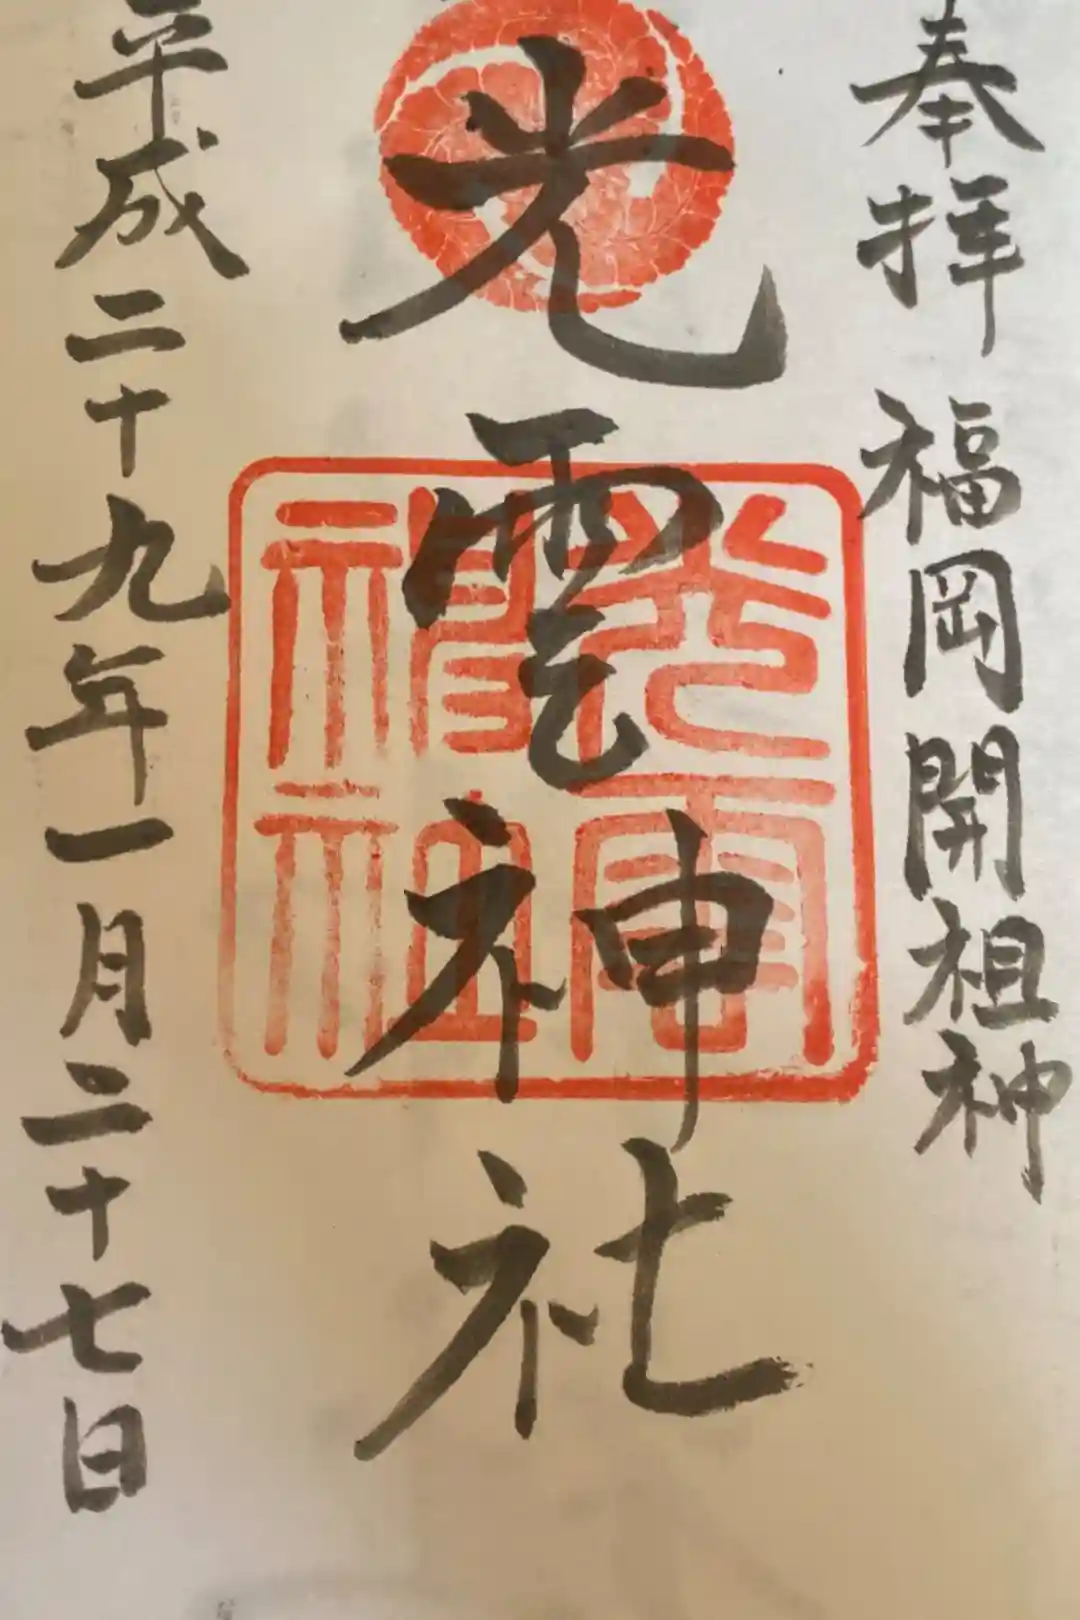 奉拝 福岡開祖神
光雲神社
光雲神社
平成二十九年一月二十七日